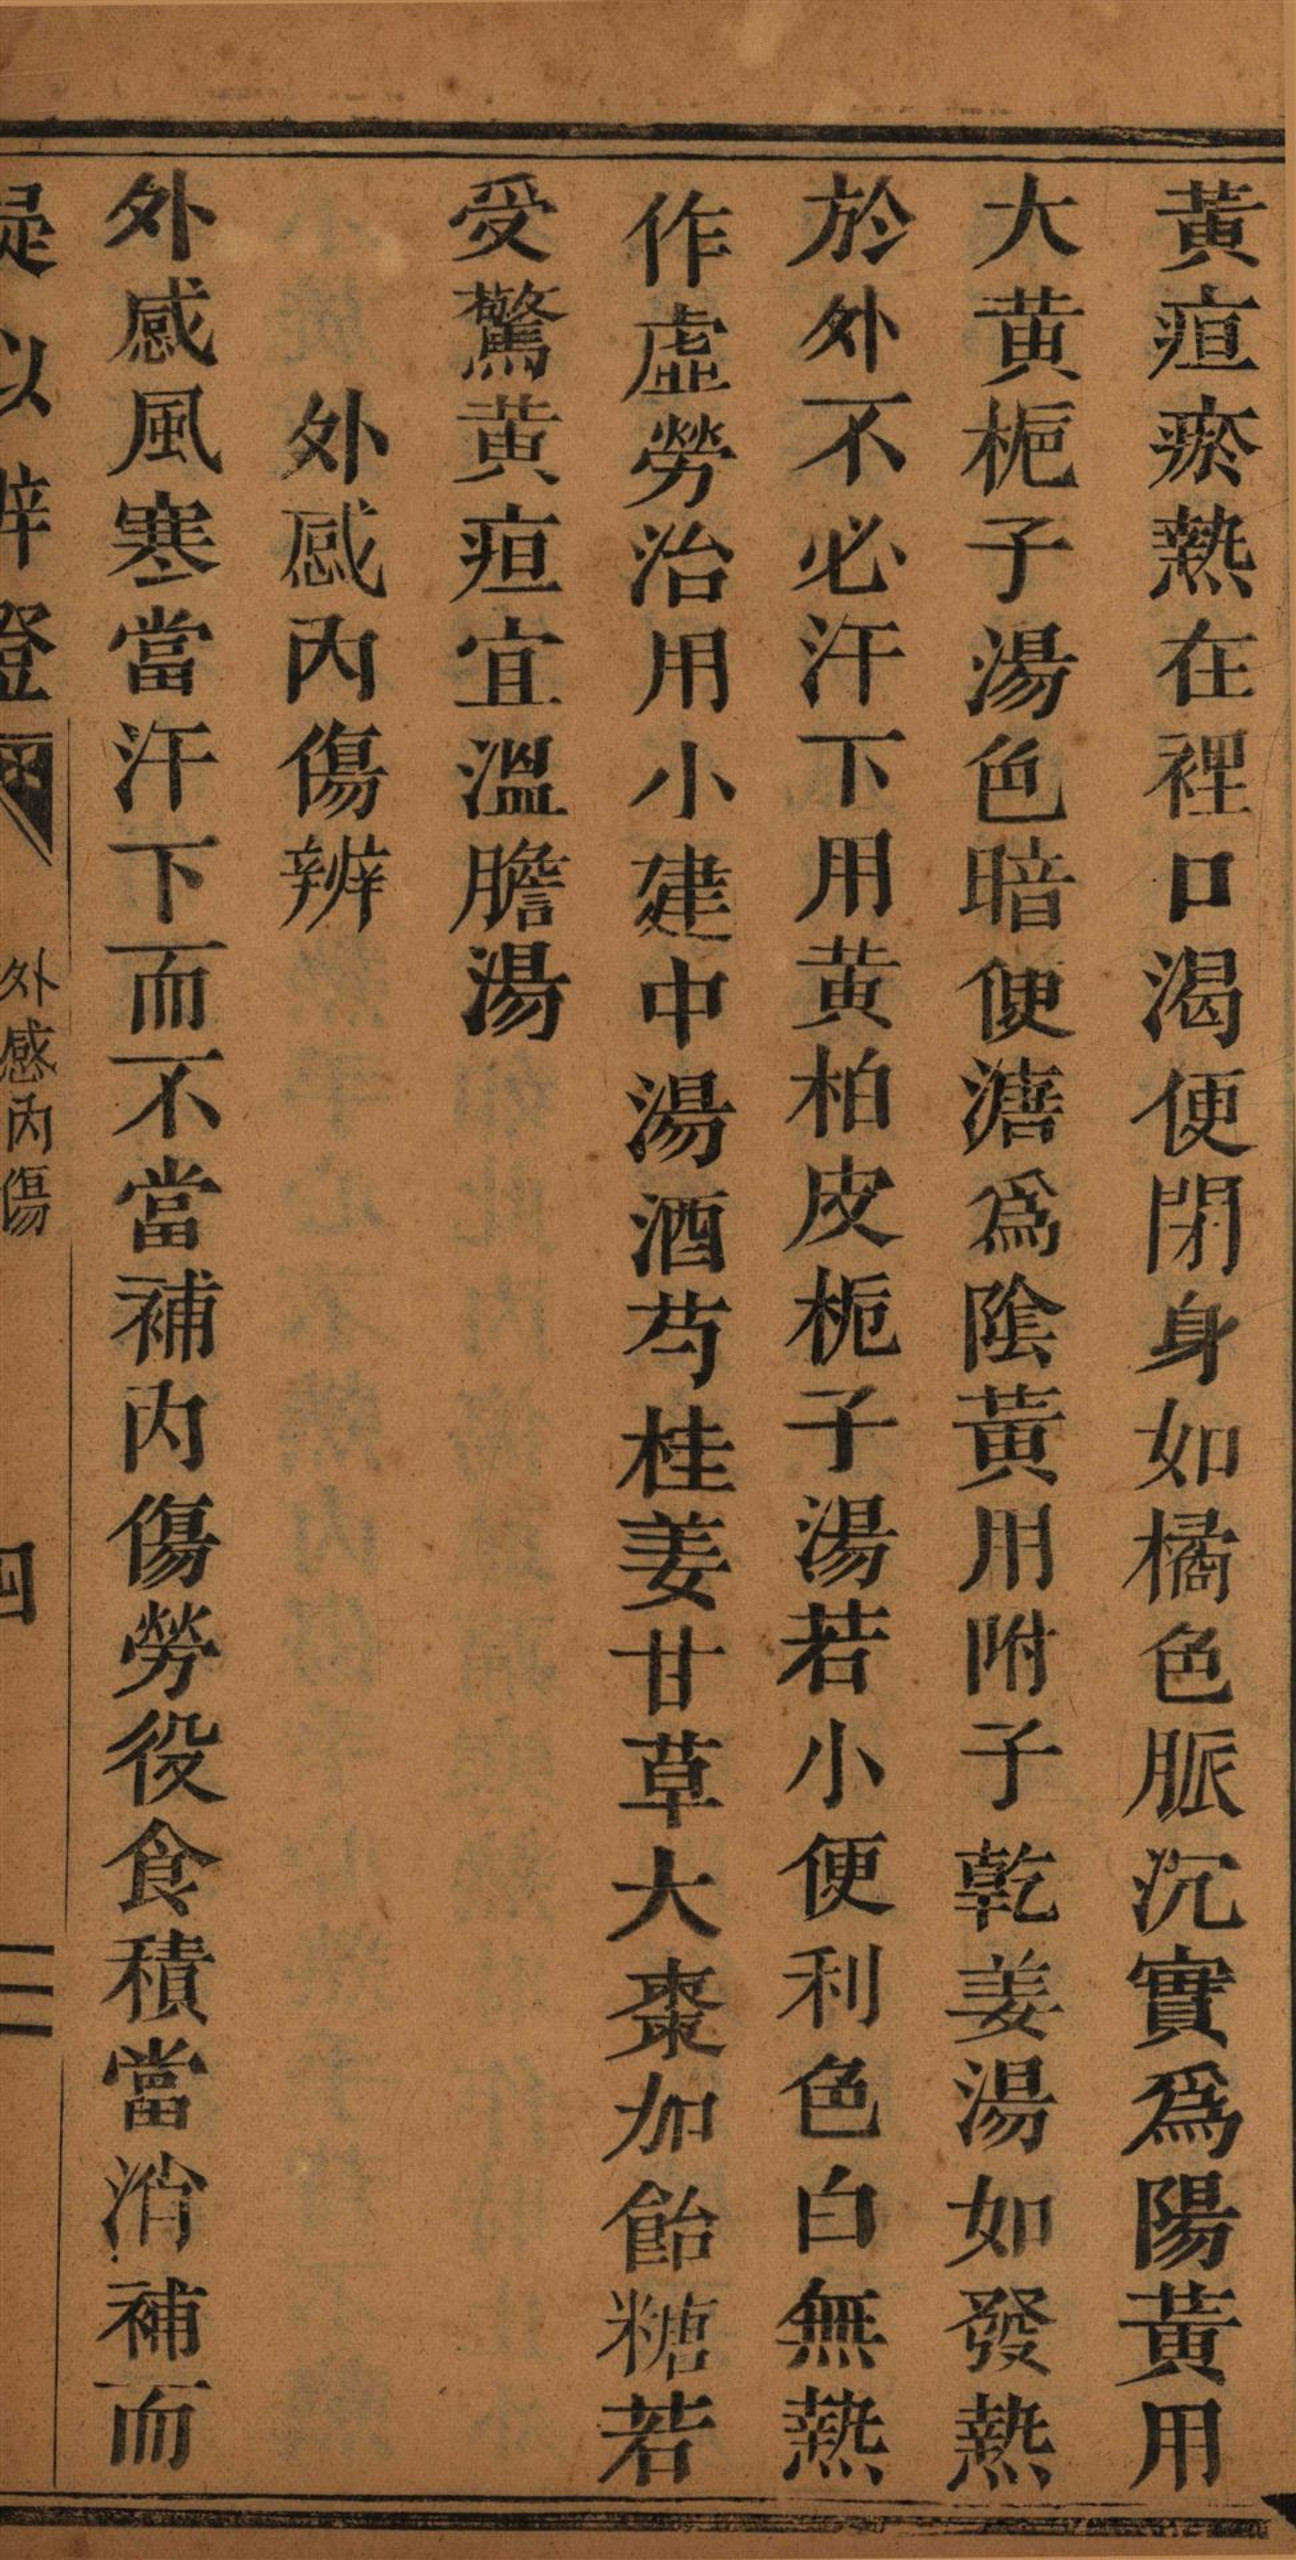 黃疸瘀熱在裡口渴便閉身如橘色脈沉實爲陽黃用
大黃梔子湯色暗便溏爲陰黃用附子乾姜湯如發熱
於外不必汗下用黃柏皮梔子湯若小便利色白無熱
作虛勞治用小建中湯酒芍桂姜甘草大棗加飴糖若
受驚黃疸宜溫膽湯
外感內傷辨
外感風寒當汗下而不當補內傷勞役食積當消補而
以辨證
外感內傷
四